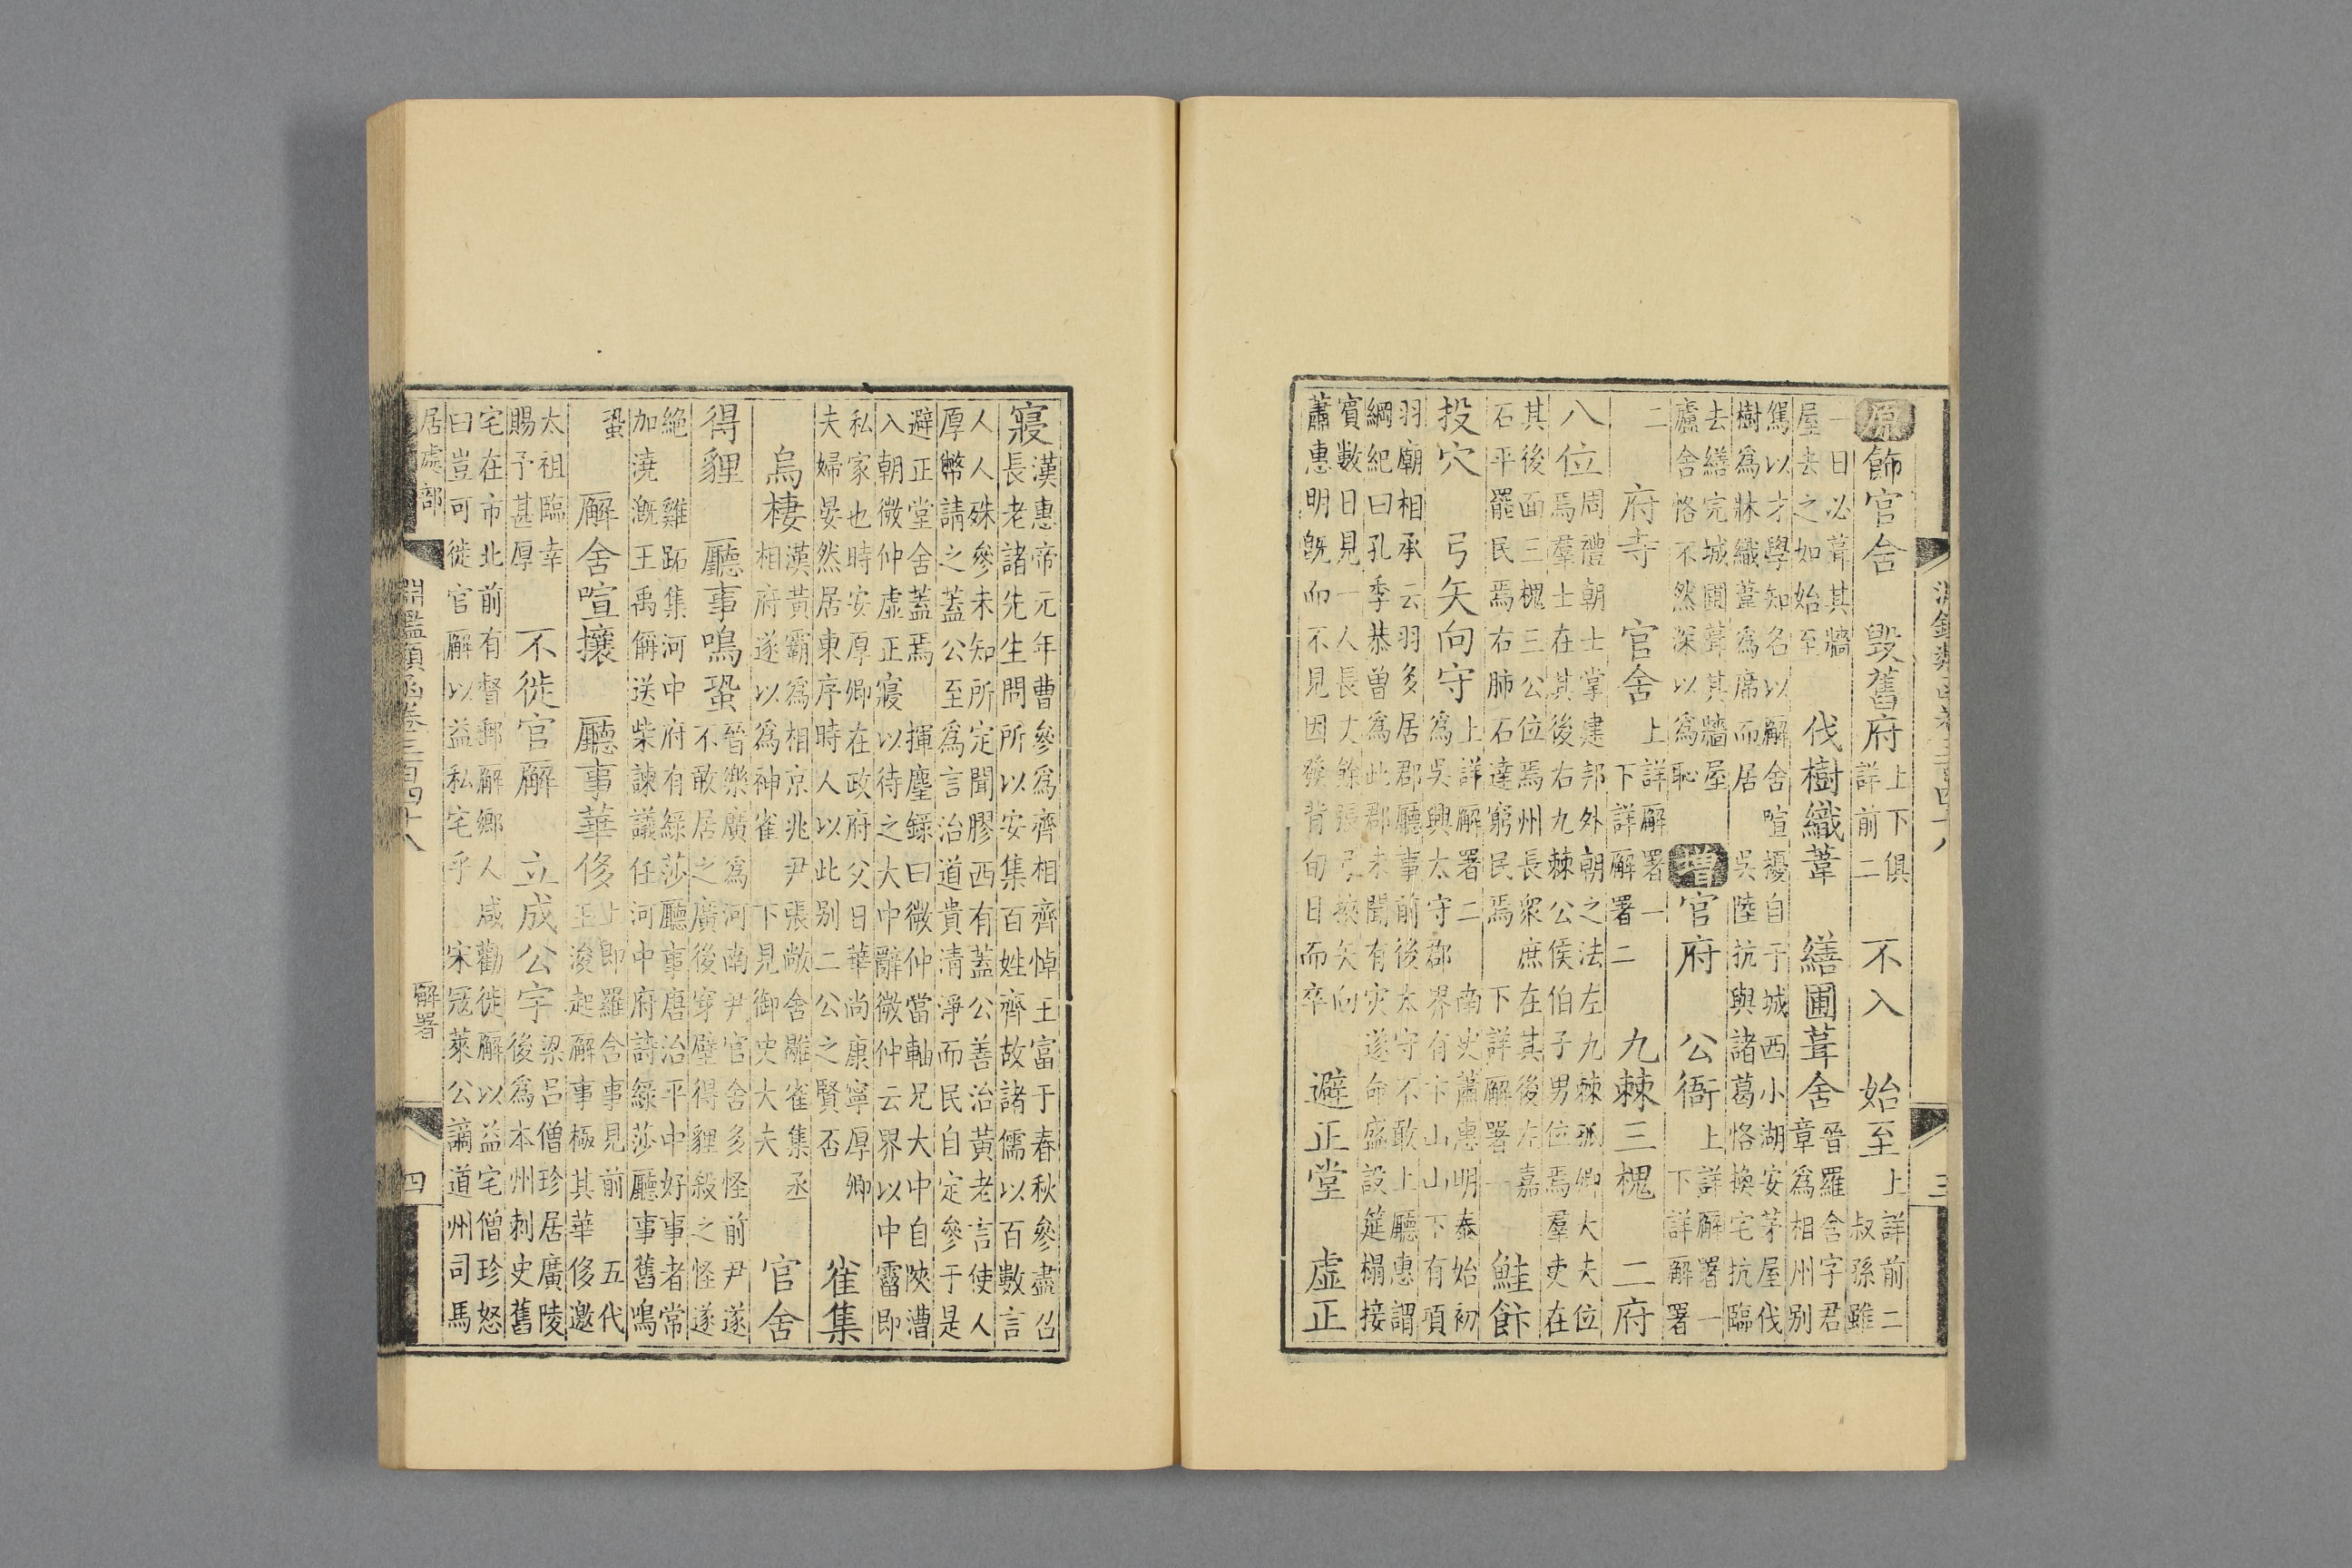 原飾官舍　毀舊府　上下俱
詳前二　不入　始至　上詳前二
叔孫雖
一日必葺其牆
屋去之如始至　伐樹織葦　繕圃葺舍　晉羅含字君
章爲相州別
駕以才學知名以廨舍喧擾自于城西小湖安茅屋伐
樹爲牀織葦爲席而居　吳陸抗與諸葛恪換宅抗臨
去繕完城圃葺其牆屋
廬舍恪不然深以爲恥　增官府　公衙　上詳廨署一
下詳廨署
二　府寺　官舍　上詳廨署一
下詳廨署二　九棘三槐　二府
八位　周禮朝士掌建邦外朝之法左九棘孤卿大夫位
焉羣士在其後右九棘公侯伯子男位焉羣吏在
其後面三槐三公位焉州長衆庶在其後左嘉
石平罷民焉右肺石達窮民焉　下詳廨署一　鮭飰
投穴　弓矢向守　上詳廨署二　南史蕭惠明泰始初
爲吳興太守郡界有卞山山下有項
羽廟相承云羽多居郡廳事前後太守不敢上廳惠謂
綱紀曰孔季恭曾爲此郡未聞有灾遂命盛設筵榻接
賓數日見一人長丈餘張弓挾矢向
蕭惠明旣而不見因發背旬日而卒　避正堂　虛正
寢　漢惠帝元年曹參爲齊相齊悼王富于春秋參盡召
長老諸先生問所以安集百姓齊故諸儒以百數言
人人殊參未知所定聞膠西有蓋公善治黃老言使人
厚幣請之蓋公至爲言治道貴清淨而民自定參于是
避正堂舍蓋焉　揮塵錄曰微仲當軸兄大中自陝漕
入朝微仲虛正寢以待之大中辭微仲云界以中霤即
私家也時安厚卿在政府父日華尚康寧厚卿
夫婦晏然居東序時人以此別二公之賢否　雀集
烏棲　漢黃霸爲相京兆尹張敞舍鶡雀集丞
相府遂以爲神雀　下見御史大夫　官舍
得貍　廳事鳴蛩　晉樂廣爲河南尹官舍多怪前尹遂
不敢居之廣後穿壁得貍殺之怪遂
絕　雞跖集河中府有綠莎廳事唐治平中好事者常
加澆漑王禹偁送柴諫議任河中府詩綠莎廳事舊鳴
蛩　廨舍喧攘　廳事華侈　上即羅含事見前　五代
王浚起廨事極其華侈邀
太祖臨幸
賜予甚厚　不徙官廨　立成公宇　梁呂僧珍居廣陵
後爲本州刺史舊
宅在市北前有督郵廨鄉人咸勸徙廨以益宅僧珍怒
曰豈可徙官廨以益私宅乎　宋冦萊公謫道州司馬
居處部　淵鑑類函卷三百四十八　廨署　四